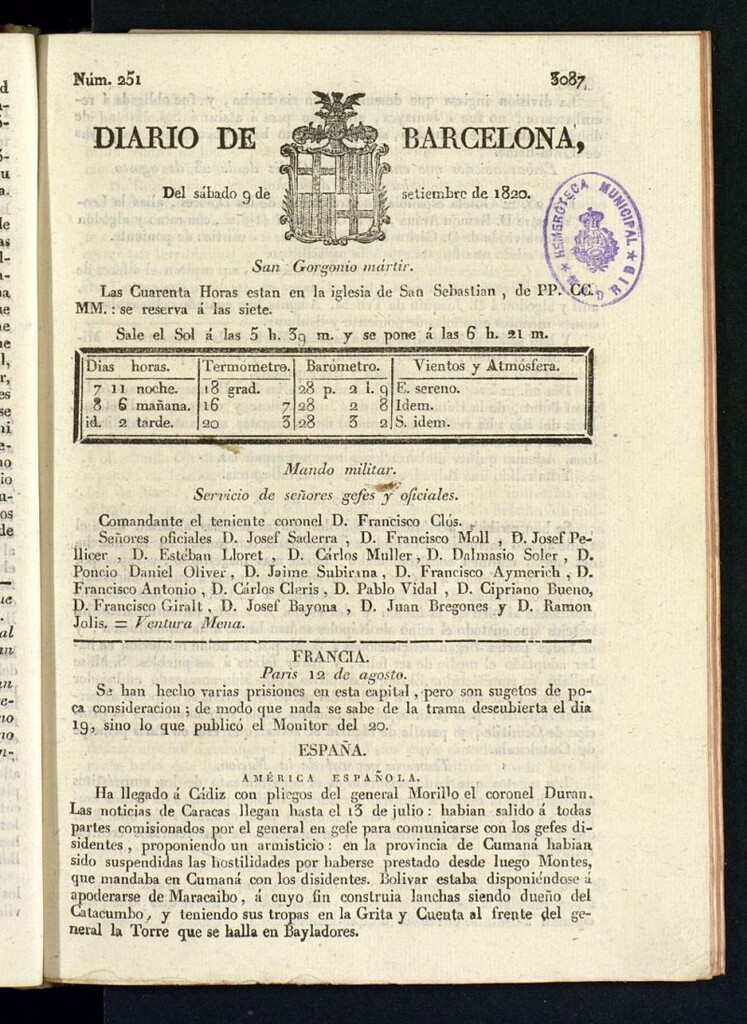 Núm. 251
3087
DIARIO DE BARCELONA,
Del sábado 9 de setiembre de 1820.
HEMEROTECA MUNICIPAL
MADRID
San Gorgonio mártir.
Las Cuarenta Horas estan en la iglesia de San Sebastian , de PP. CC.
MM. : se reserva á las siete.
Sale el Sol á las 5 h. 39 m. y se pone á las 6 h. 21 m.
Dias horas. Termometro. Barómetro. Vientos y Atmósfera.
7 11 noche. 18 grad. 28 p. 2 l. 9 E. sereno.
8 6 mañana. 16 7 28 2 8 Idem.
id. 2 tarde. 20 3 28 3 2 S. idem.
Mando militar.
Servicio de señores gefes y oficiales.
Comandante el teniente coronel D. Francisco Clós.
Señores oficiales D. Josef Saderra , D. Francisco Moll , D. Josef Pe-
llicer , D. Estéban Lloret , D. Cárlos Muller , D. Dalmasio Soler , D.
Poncio Daniel Oliver , D. Jaime Subirana , D. Francisco Aymerich , D.
Francisco Antonio , D. Cárlos Cleris , D. Pablo Vidal , D. Cipriano Bueno,
D. Francisco Giralt , D. Josef Bayona , D. Juan Bregones y D. Ramon
Jolis. = Ventura Mena.
FRANCIA.
Paris 12 de agosto.
Se han hecho varias prisiones en esta capital , pero son sugetos de po-
ca consideracion ; de modo que nada se sabe de la trama descubierta el dia
19, sino lo que publicó el Monitor del 20.
ESPAÑA.
AMÉRICA ESPAÑOLA.
Ha llegado á Cádiz con pliegos del general Morillo el coronel Duran.
Las noticias de Caracas llegan hasta el 13 de julio : habian salido á todas
partes comisionados por el general en gefe para comunicarse con los gefes di-
sidentes , proponiendo un armisticio : en la provincia de Cumaná habian
sido suspendidas las hostilidades por haberse prestado desde luego Montes,
que mandaba en Cumaná con los disidentes. Bolivar estaba disponiéndose á
apoderarse de Maracaibo , á cuyo fin construia lanchas siendo dueño del
Catacumbo, y teniendo sus tropas en la Grita y Cuenta al frente del ge-
neral la Torre que se halla en Bayladores.